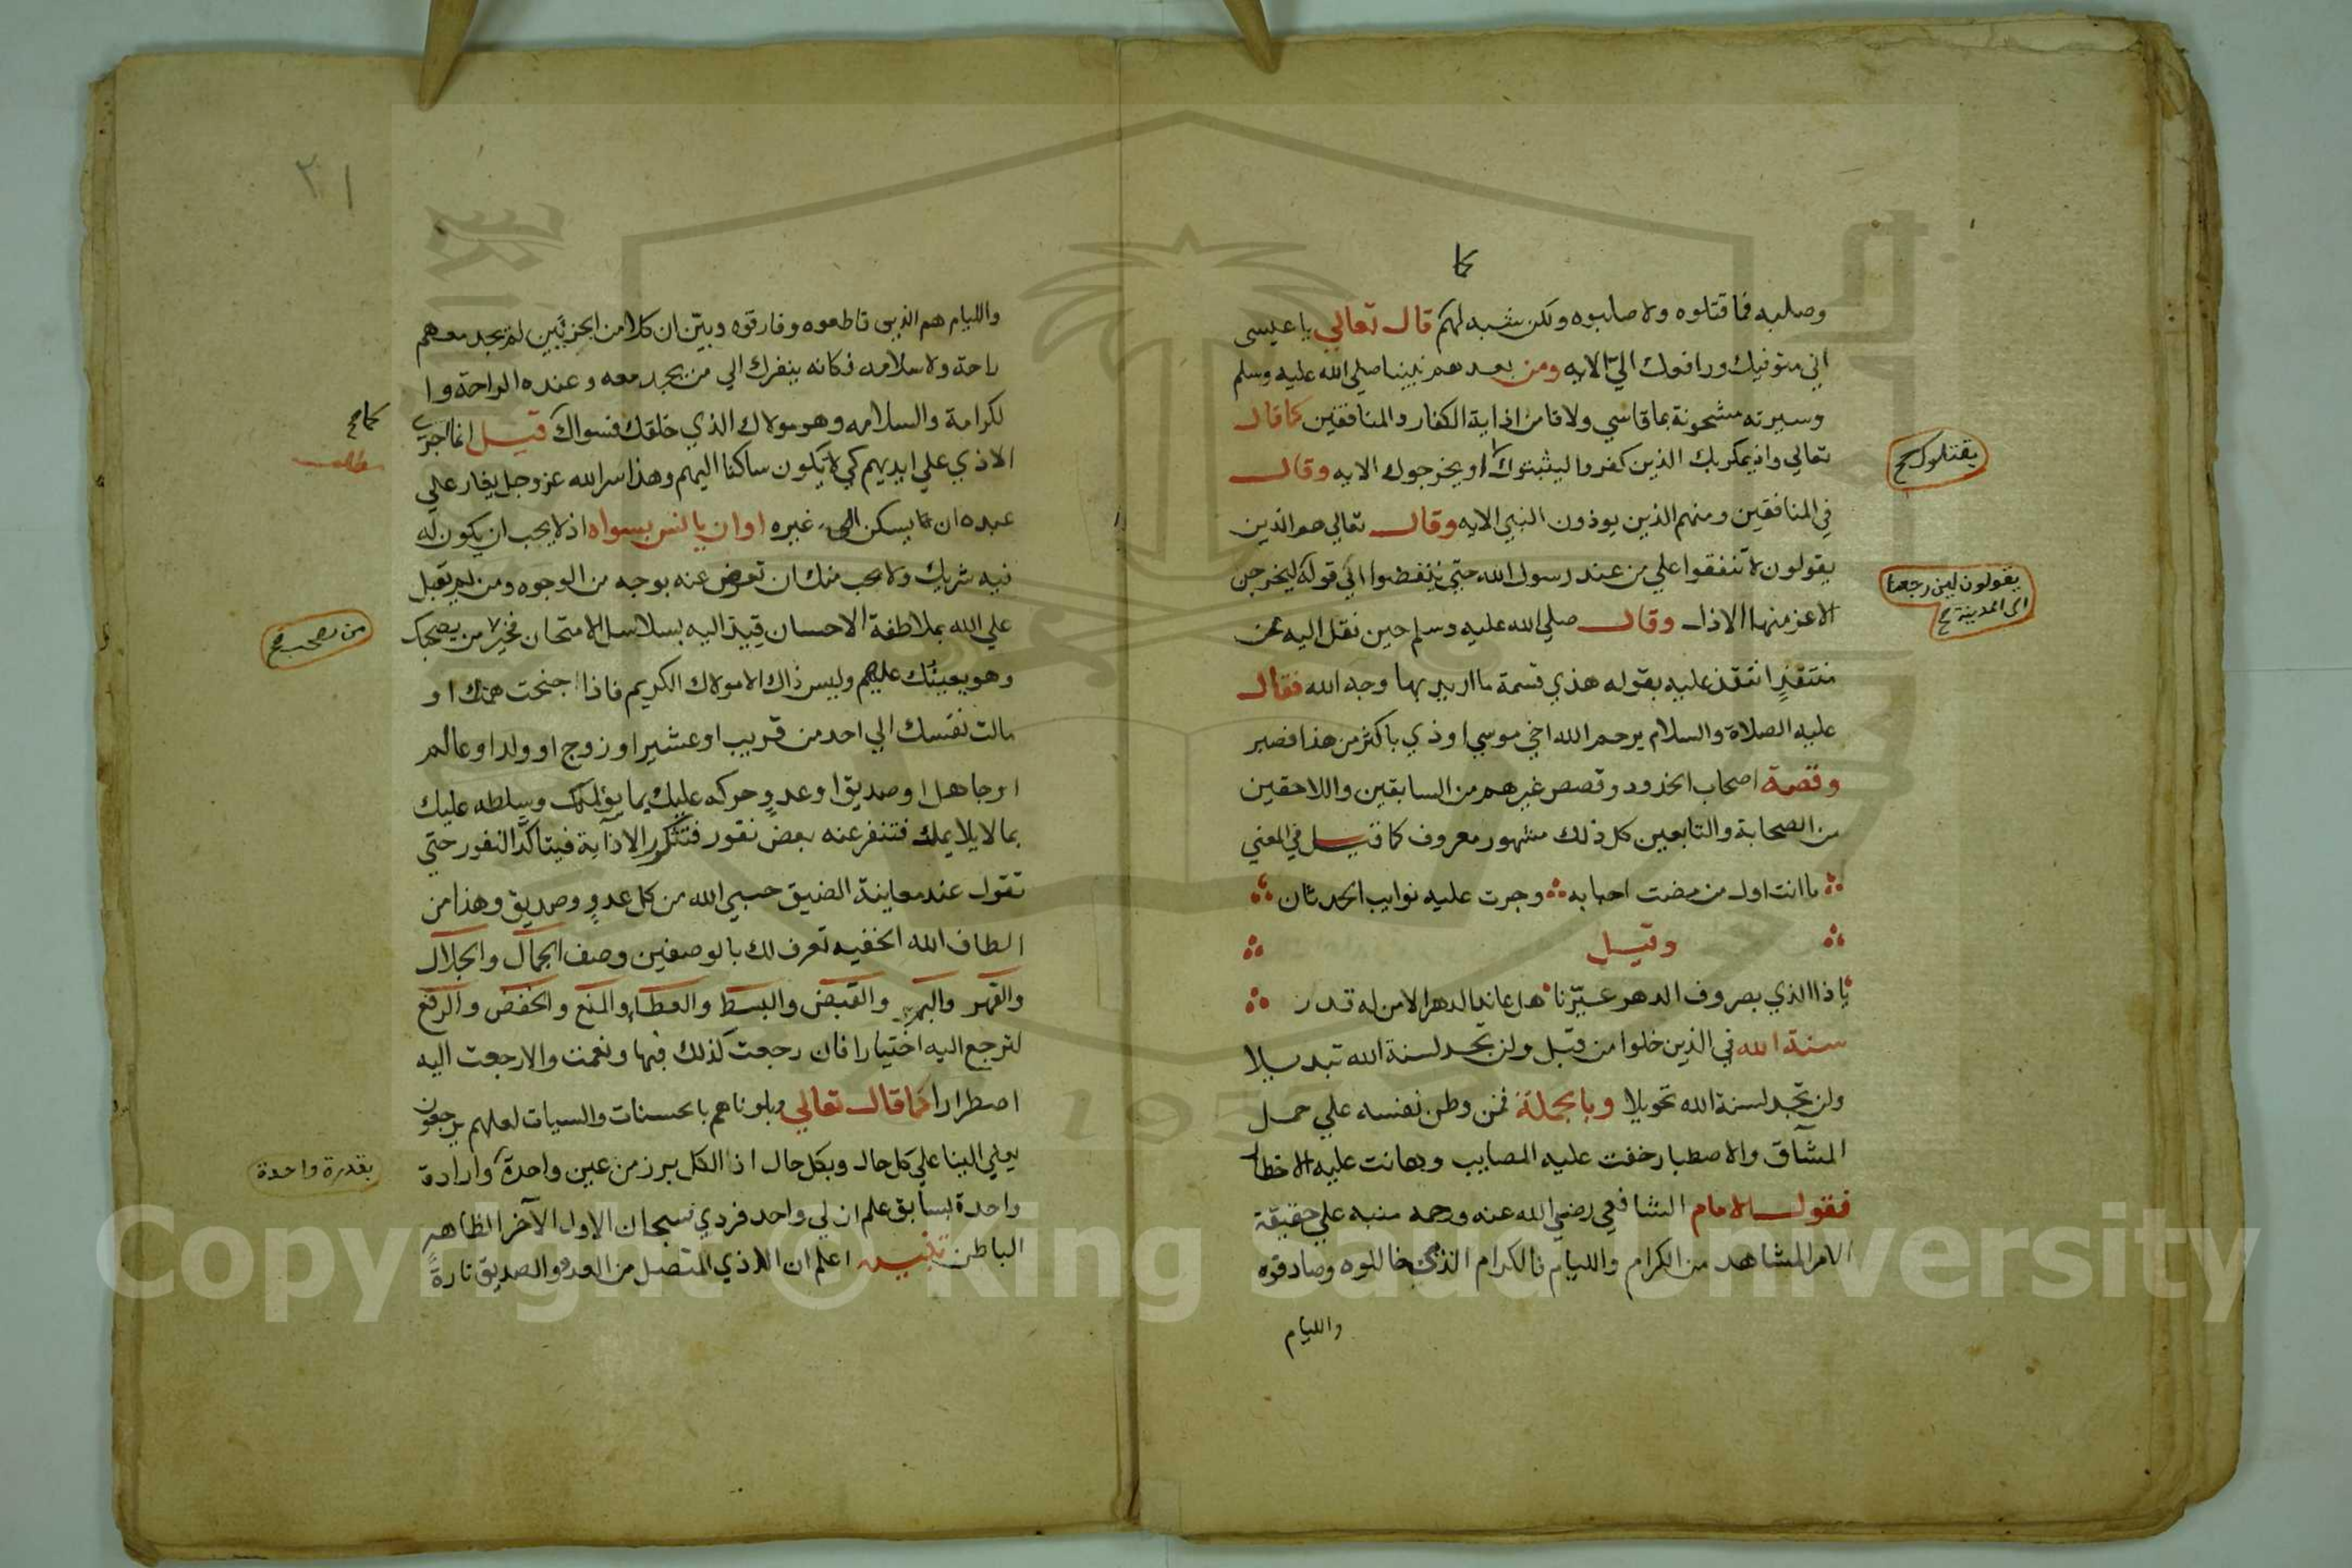 كما
وصلبه فما قتلوه ولا صلبوه ولكن شبه لهم قال تعالي يا عيسى
اني متوفيك ورافعك اليّ الايه ومن بعدهم نبينا صلي الله عليه وسلم
وسيرته مشحونة بما قاسي ولاقا من اذاية الكفار والمنافقين كما قال
تعالي واذ يمكر بك الذين كفروا ليثبتوك او يخرجوك الايه وقال
يقتلوك صح
في المنافقين ومنهم الذين يوذون النبي الايه وقال تعالي هم الذين
يقولون لا تنفقوا علي من عند رسول الله حتي ينفضوا الي قوله ليخرجن
يقولون لين رجعنا
الى المدينة صح
الاعز منها الاذل وقال صلي الله عليه وسلم حين نقل اليه عن
منتقدٍ انتقد عليه بقوله هذي قسمة ما اريد بها وجه الله فقال
عليه الصلاة والسلام يرحم الله اخي موسي اوذي باكثر من هذا فصبر
وقصة اصحاب الخدود وقصص غيرهم من السابقين واللاحقين
من الصحابة والتابعين كل ذلك مشهور معروف كما قيل في المعني
ما انت اول من مضت احبابه وجرت عليه نوايب الحدثان
وقيل
يا ذا الذي بصروف الدهر عيّرنا هل عاند الدهر الا من له قدر
سنة الله في الذين خلوا من قبل ولن تجد لسنة الله تبديلا
ولن تجد لسنة الله تحويلا وبالجملة فمن وطن نفسه علي حمل
المشآق والاصطبار خفت عليه المصايب وهانت عليه الاخطار
فقول الامام الشافعي رضي الله عنه ورحمه منبه علي حقيقة
الامر المشاهد من الكرام والليام فالكرام الذين خاللوه وصادقوه
والليام
٢١
والليام هم الذين قاطعوه وفارقوه وبيّن ان كلا من الحزبين لم يجد معهم
راحة ولا سلامه فكانه ينفرك الي من يجد معه وعنده الراحة وا
لكرامة والسلامه وهو مولاك الذي خلقك فسواك قيل انما اجري
كما صح
مطلب
الاذي علي ايديهم كي لا تكون ساكنا اليهم وهذا سر الله عز وجل يغار علي
عبده ان يسكن الى غيره او ان يانس بسواه اذ لا يحب ان يكون له
فيه شريك ولا يحب منك ان تعوض عنه بوجه من الوجوه ومن لم يقبل
علي الله بملاطفة الاحسان قيد اليه بسلاسل الامتحان فخير من يصحبك
من تصحب صح
وهو يعينك عليهم وليس ذاك الا مولاك الكريم فاذا جنحت همتك او
مالت نفسك الي احد من قريب او عشير او زوج او ولد او عالم
او جاهل او صديق او عدوٍ حركه عليك بما يؤلمك وسلطه عليك
بما لا يلايمك فتنفر عنه بعض نفور فتتكرر الاذآية فيتاكد النفور حتي
تقول عند معاينة الضيق حسبي الله من كل عدوٍ وصديق وهذا من
الطاف الله الخفيه تعرف لك بالوصفين وصف الجمال والجلال
والقهر والبر والقبض والبسط والعطا والمنع والخفض والرفع
لترجع اليه اختيارا فان رجعت كذلك فبها ونعمت والا رجعت اليه
اضطرارا كما قال تعالي وبلوناهم بالحسنات والسيات لعلهم يرجعون
يعني الينا علي كل حال وبكل حال اذ الكل برز من عين واحدة وارادة
بقدرة واحدة
واحدة لسابق علم ازلي واحد فردي فسبحان الاول الآخر الظاهر
الباطن تنبيه اعلم ان الاذي المتصل من العدو والصديق تارةً
Copyright © King Saud University
195